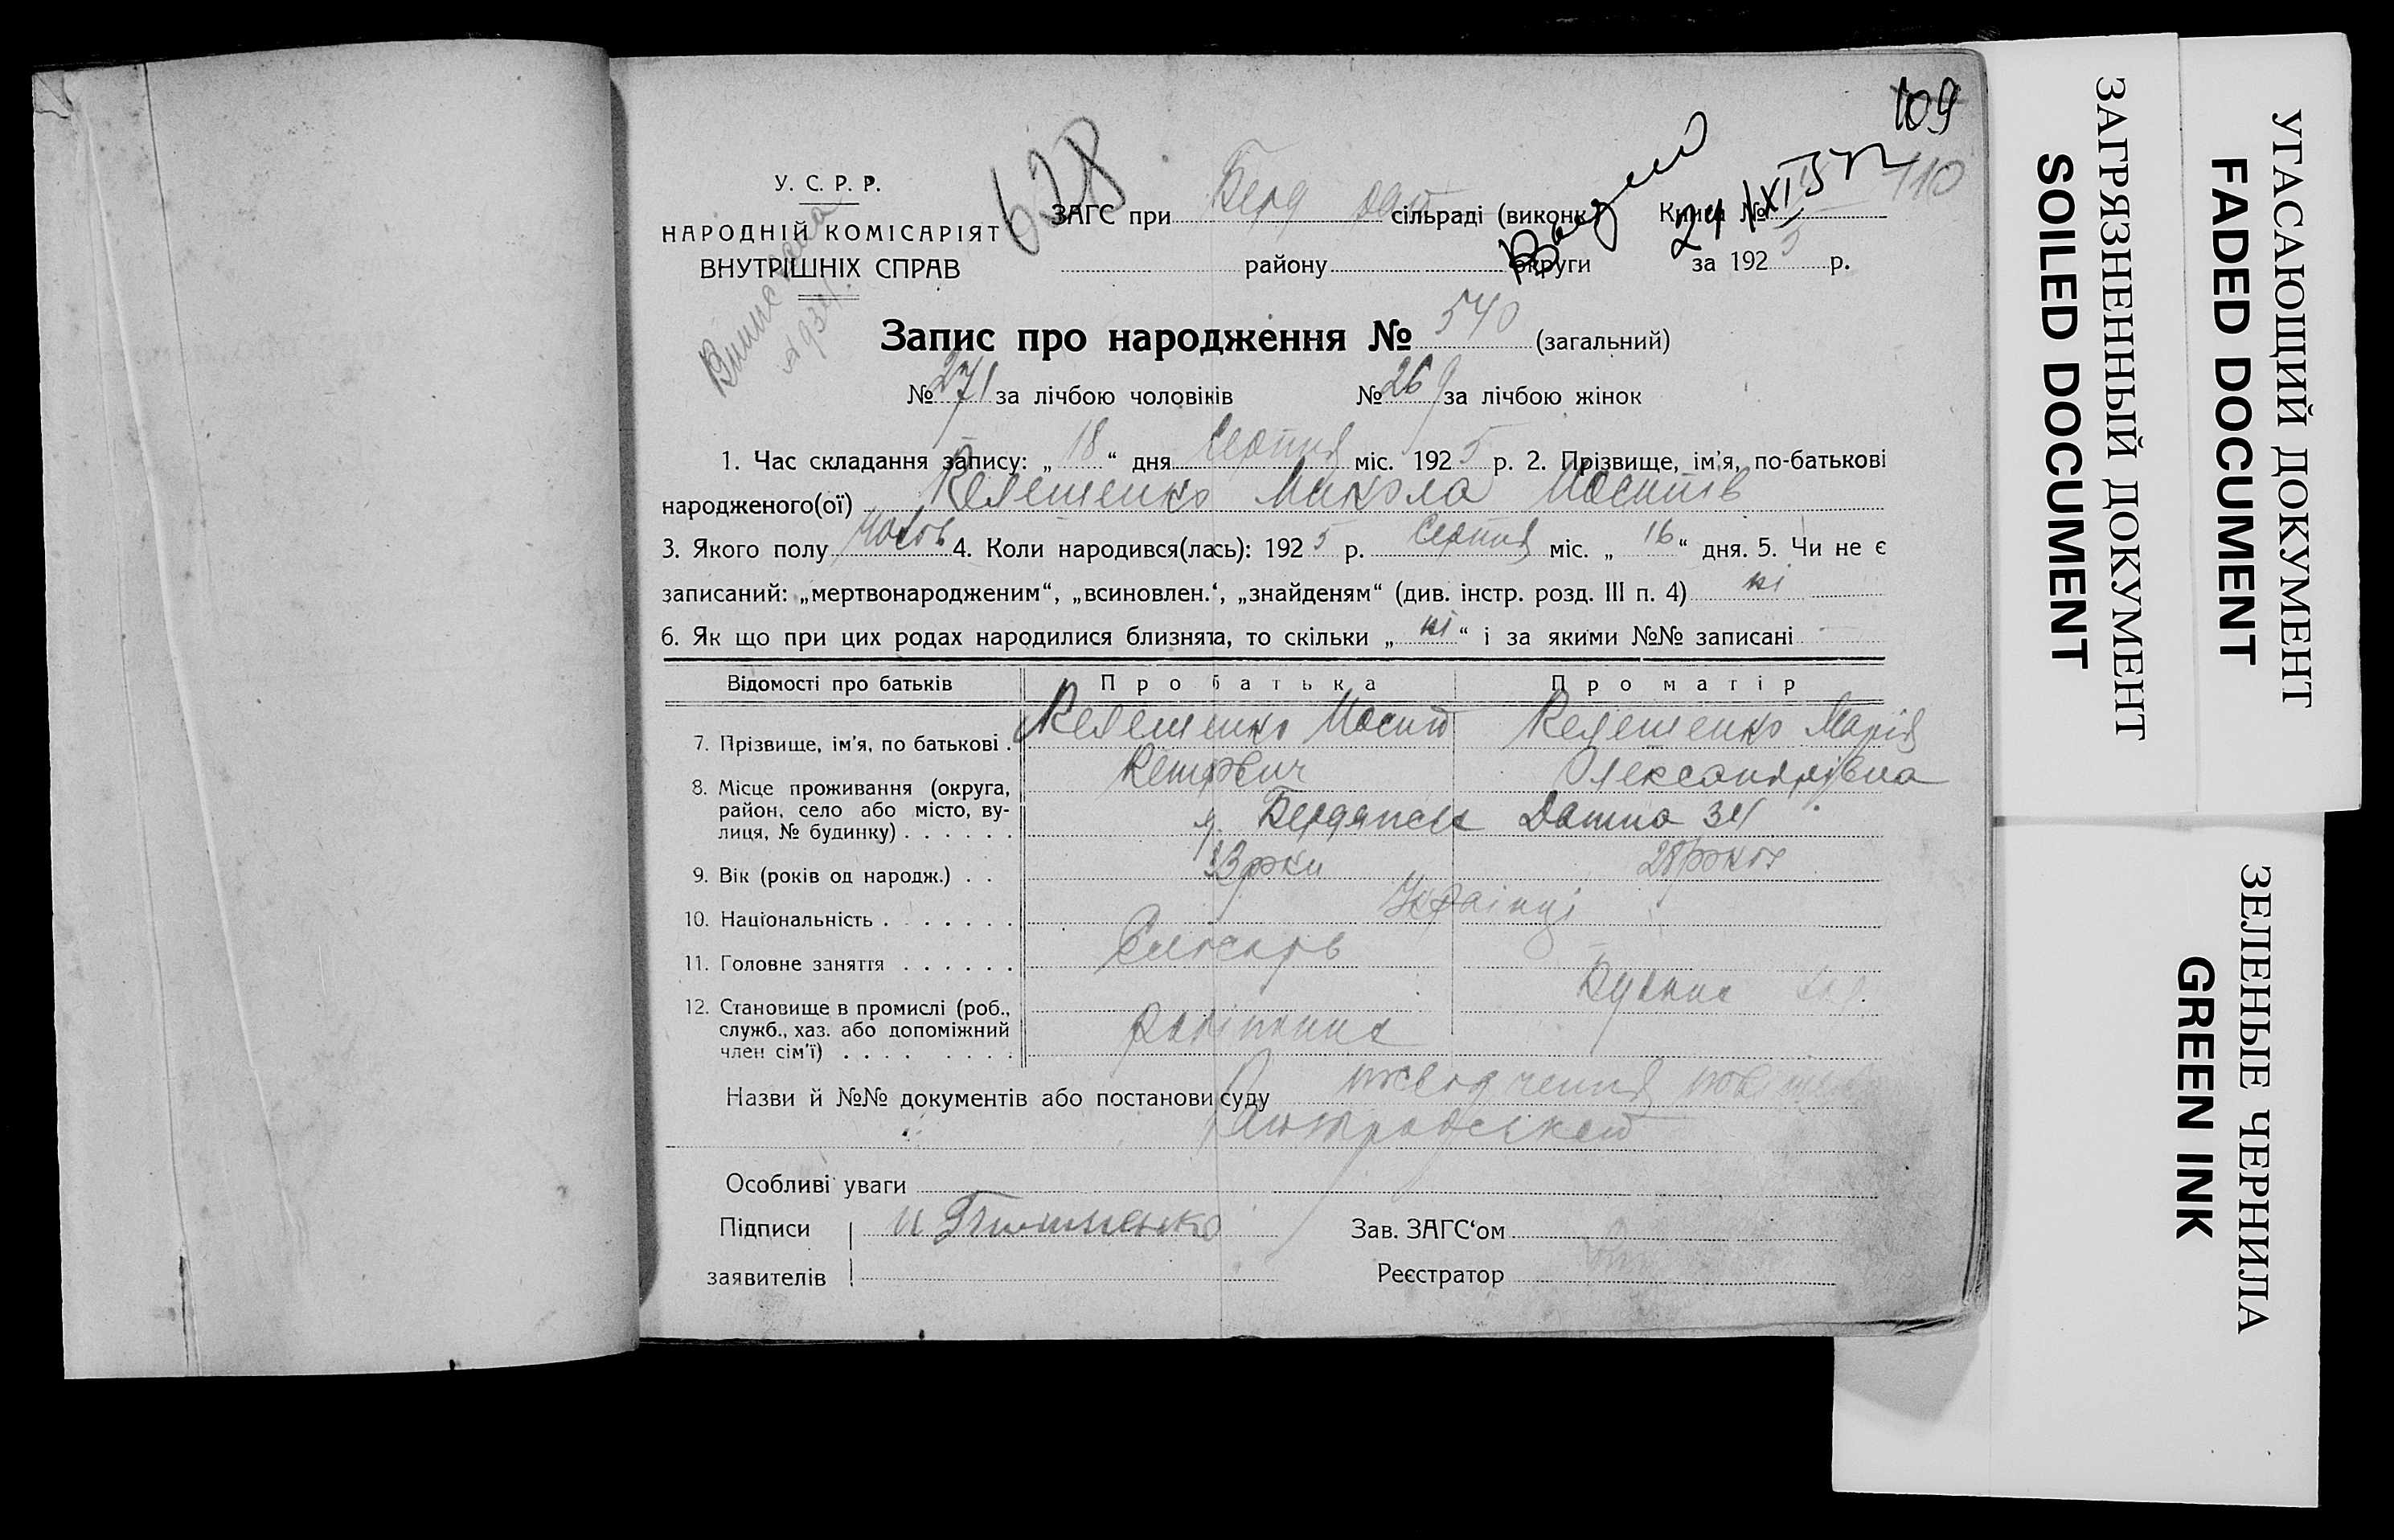 109
110
У. С. Р. Р.
НАРОДНІЙ КОМІСАРІЯТ
ВНУТРІШНІХ СПРАВ
628
ЗАГС при Берд сільраді (виконк.) Книга №
району округи за 1925 р.
Запис про народження № 540 (загальний)
№ 271 за лічбою чоловіків № 269 за лічбою жінок
1. Час складання запису: „18“ дня Серпня міс. 1925 р. 2. Прізвище, ім’я, по-батькові
народженого(ої) Келешенко Микола Йосипів
3. Якого полу чолов 4. Коли народився(лась): 1925 р. Серпня міс. „16“ дня. 5. Чи не є
записаний: „мертвонародженим“, „всиновлен.‘, „знайденям“ (див. інстр. розд. III п. 4) ні
6. Як що при цих родах народилися близнята, то скільки „ні“ і за якими №№ записані
Відомості про батьків Про батька Про матір
7. Прізвище, ім’я, по батькові . Келешенко Йосип Келешенко Марія
Петрович Олександрівна
8. Місце проживання (округа,
район, село або місто, ву-
лиця, № будинку) . . . . . . Бердянськ 34
9. Вік (років од народж.) . . 33 роки 28 років
10. Національність . . . . . . . Українці
11. Головне заняття . . . . . . Слюсарь
12. Становище в промислі (роб.,
служб., хаз. або допоміжний
член сім’ї) . . . . . . . . робітник
Назви й №№ документів або постанови суду посвідчення
Особливі уваги
Підписи
заявителів
Зав. ЗАГС‘ом
Реєстратор
ЗАГРЯЗНЕННЫЙ ДОКУМЕНТ
SOILED DOCUMENT
УГАСАЮЩИЙ ДОКУМЕНТ
FADED DOCUMENT
ЗЕЛЕНЫЕ ЧЕРНИЛА
GREEN INK